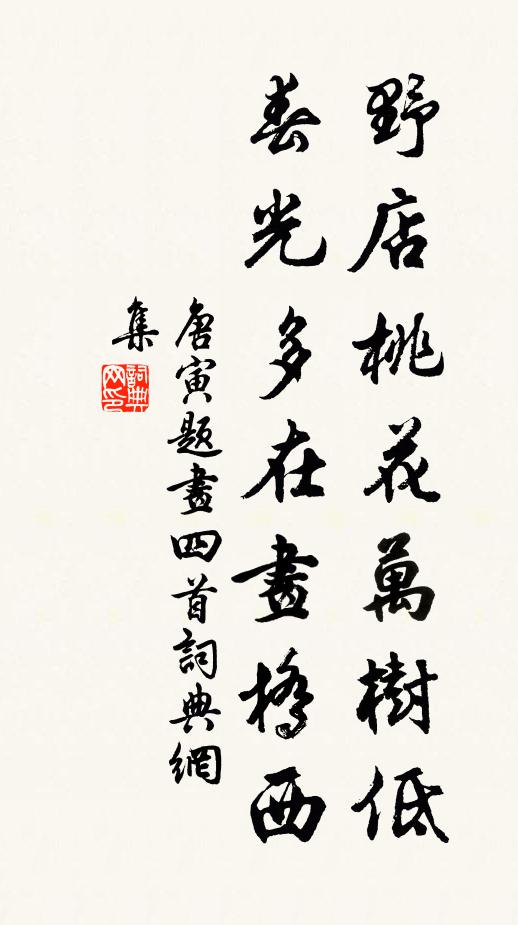 野店桃花萬樹低
春光多在畫橋西
唐寅題畫四首詞典網
集
詞典
网印